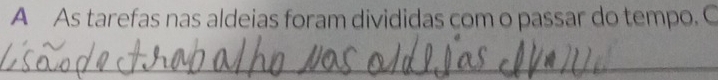 A As tarefas nas aldeias foram divididas com o passar do tempo. C
lisão de trabalho nas aldejas